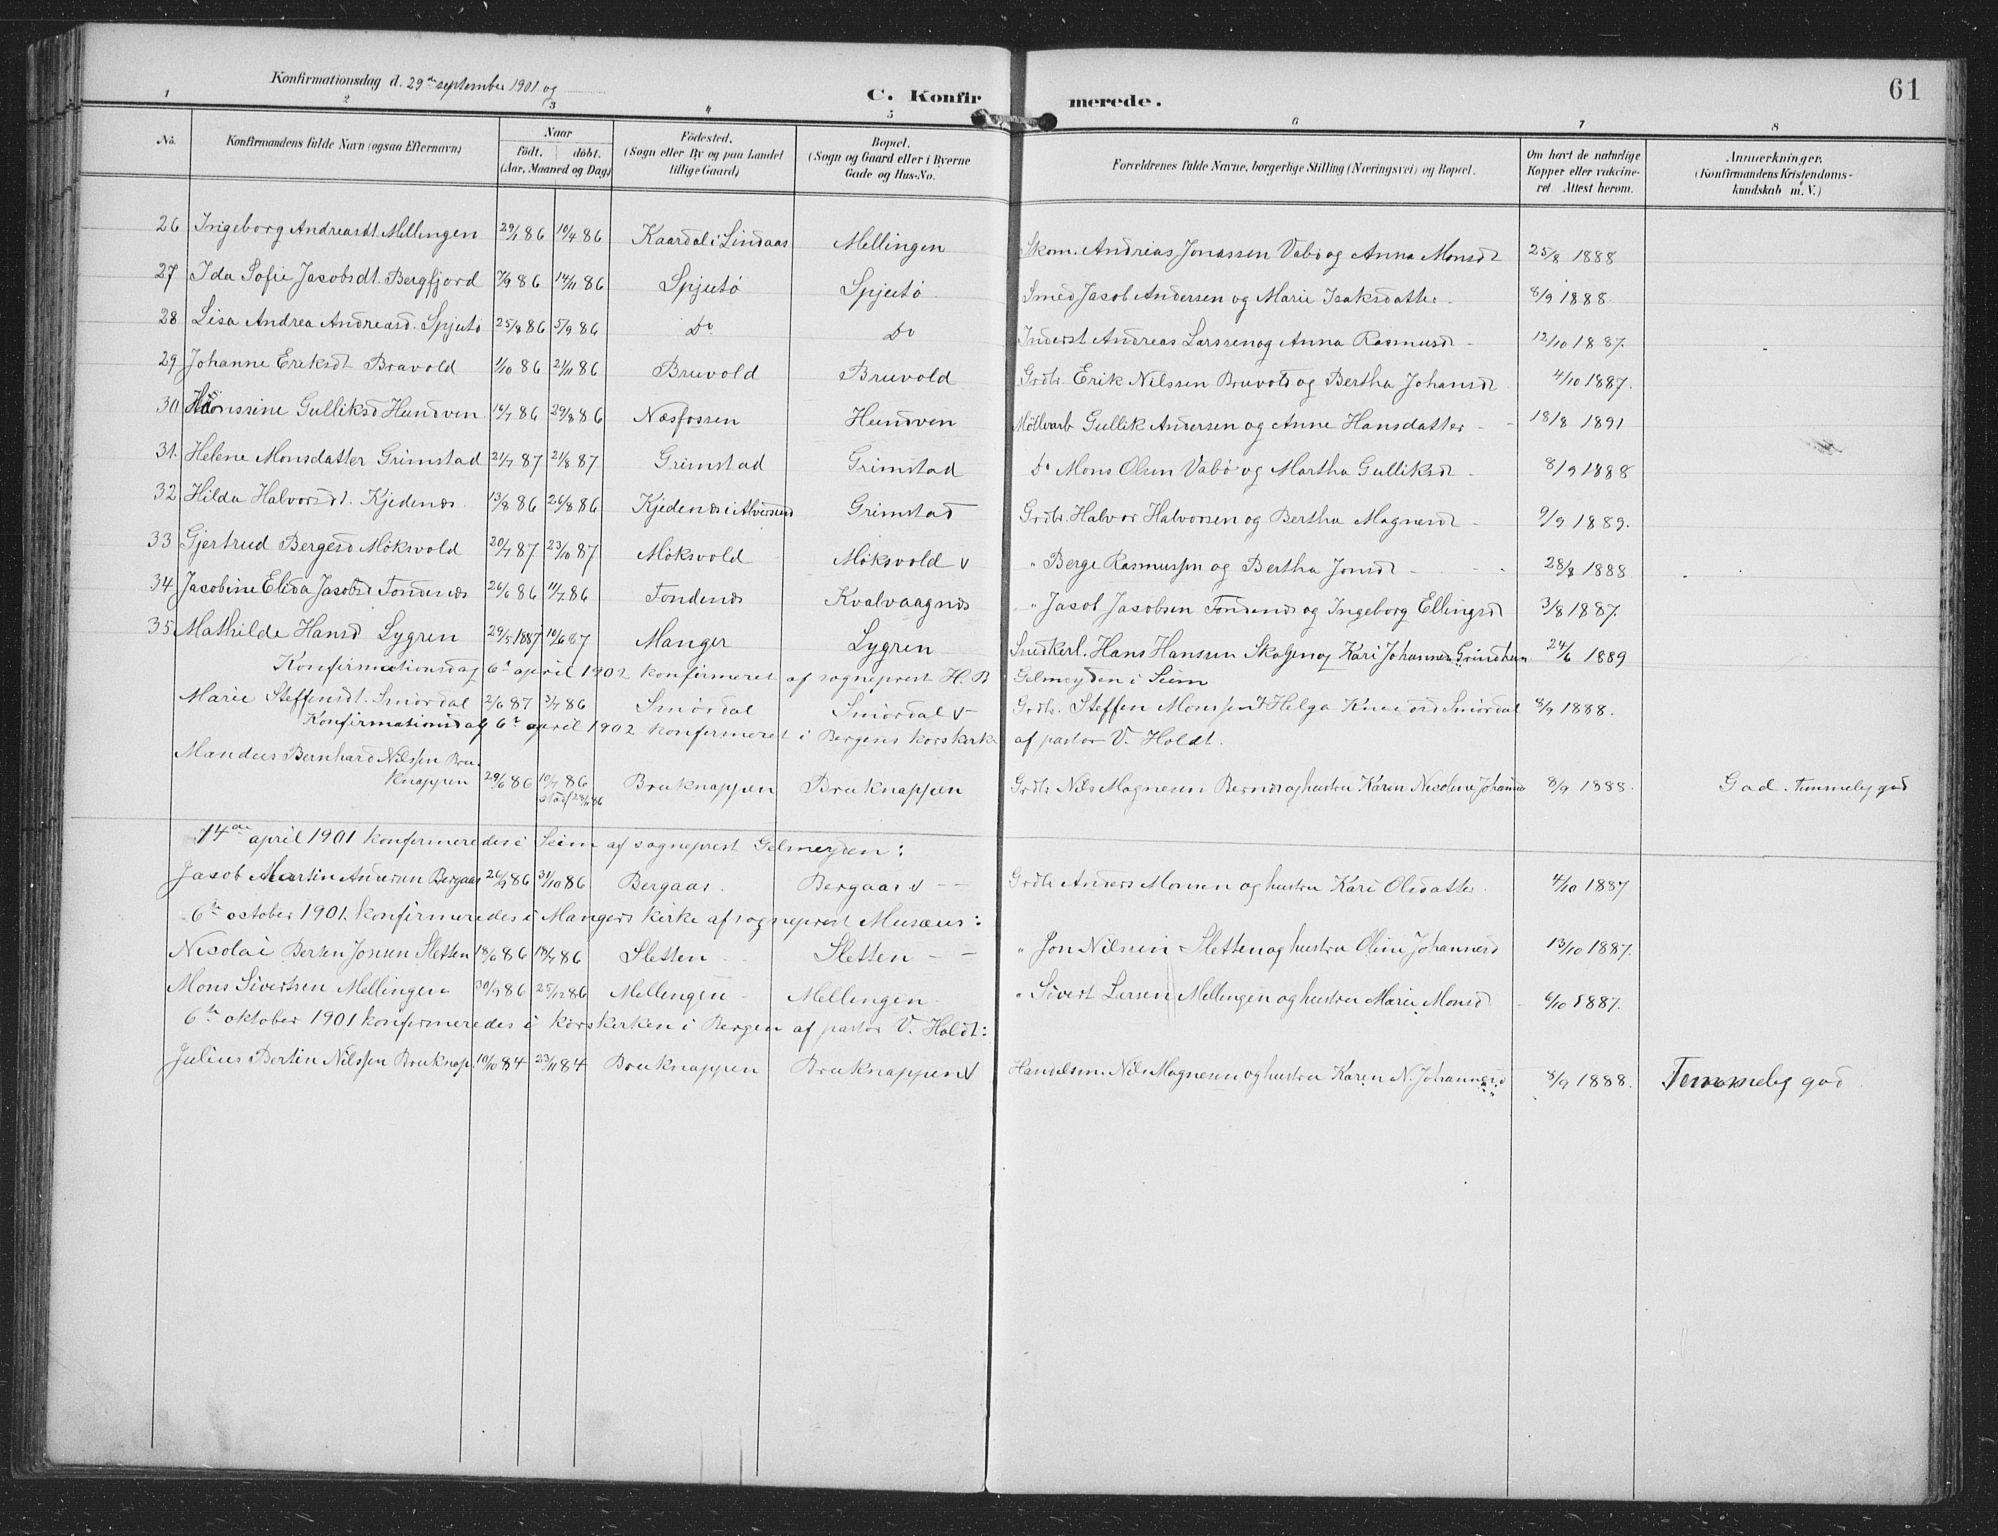 Konfirmationsdag d. 29de september 1901 og
C. Konfirmerede.
61
1 2 3 4 5 6 7 8
No. Konfirmandens fulde Navn (ogsaa Efternavn) Naar födt. döbt. (Aar, Maaned og Dag) Födested. (Sogn eller By og paa Landet tillige Gaard) Bopæl. (Sogn og Gaard eller i Byerne Gade og Hus-No. Forældrenes fulde Navne, borgerlige Stilling (Næringsvei) og Bopæl. Om havt de naturlige Kopper eller vakcineret Attest herom. Anmærkninger. (Konfirmandens Kristendomskundskab m. V.)
26 Ingeborg Andreasdt. Mellingen 29/1 86 10/4 86 Kaardal i Lindaas Mellingen Skom. Andreas Jonassen Vabø og Anna Monsdt 25/8 1888
27 Ida Sofie Jacobsdt. Bergfjord 7/9 86 14/11 86 Spjutö Spjutö Smed Jacob Andersen og Marie Isaksdatter 8/9 1888.
28 Lisa Andrea Andreasd. Spjutö 25/8 86 5/9 86 Do Do Inderst Andreas Larssen og Anna Rasmusd 12/10 1887.
29 Johanne Eriksdt Bruvold 1/10 86 21/11 86 Bruvold Bruvold Grdbr. Erik Nilssen Bruvold og Bertha Johansdt 4/10 1887.
30 Hanssine Gulliksd Hundven 14/7 86 29/8 86 Næsfossen Hundven Möllearb Gullik Andersen og Anne Hansdatter 18/8 1891
31. Helene Monsdatter Grimstad 21/7 87 21/8 87 Grimstad Grimstad Do Mons Olsen Vabö og Martha Gulliksdt 8/9 1888
32 Hilda Halvorsdt. Kjedenæs 13/8 86 26/8 86 Kjedenæs i Alversund Grimstad Grdbr. Halvor Halvorsen og Bertha Magnesdt 9/9 1889.
33 Gjertrud Bergesd Möksvold 20/7 87 23/10 87 Möksvold Möksvold v " Berge Rasmussen og Bertha Jonsdt 28/8 1888
34 Jacobine Elida Jacobsd Fondenæs 26/6 86 11/7 86 Fondenæs Kvalvaagnæs " Jacob Jacobsen Fondenæs og Ingeborg Ellingsd 3/8 1887.
35 Mathilde Hansd Lygren 29/5 1887 10/6 87 Manger Lygren Snedkerl. Hans Hanssen Skagen og Kari Johannesd Grindheim 24/6 1889
Konfirmationsdag 6te april 1902 konfirmeret af sogneprest H. B Gelmeyden i Seim
Marie Steffensdt. Smördal 2/6 87 3/7 86 Smördal Smördal v Grdbr. Steffen Monsen & Helga Smördal 8/9 1888.
Konfirmationsdag 6te april 1902 konfirmeret i Bergens korskirke af pastor V. Holdt.
Mandeus Bernhard Nilssen Bruknappen 29/6 86 10/7 86 Bruknappen Bruknappen Grdbr Nils Magnesen og hustru Karen Nicoline Johannes 8/9 1888. God. Temmelig god
14de april 1901 konfirmeredes i Seim af sogneprest Gelmeyden:
Jacob Martin Andersen Bergaas 26/9 86 31/10 86 Bergaas. Bergaas v Grdbr Anders Monsen og hustru Kari Olsdatter. 4/10 1887
6te october 1901. konfirmeredes i Mangers kirke af sogneprest Musæus:
Nicolai Berten Jonsen Sletten 13/6 86 18/7 86 Sletten Sletten " Jon Nilssen Sletten og hustru Oline Johannesd 13/10 1887.
Mons Sivertsen Mellingen 30/9 86 25/12 86 Mellingen Mellingen " Sivert Larsen Mellingen og hustru Marie Monsd. 6/10 1887.
6te oktober 1901 konfirmeredes i korskirken i Bergen af pastor V. Holdt:
Julius Bertin Nilssen Bruknap. 10/10 84 23/11 84 Bruknappen Bruknappen v Handelsm. Nils Magnesen og hustru Karen N. Johannesd 8/9 1888. Temmelig god